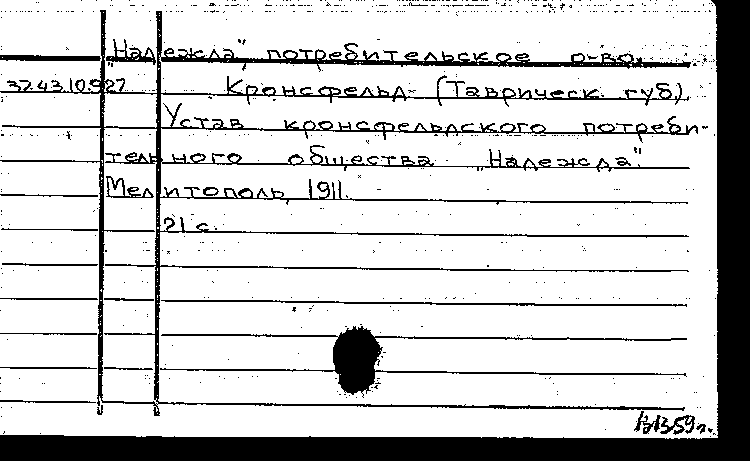 "Надежда", потребительское о-во.
37.43.10.927 Кронсфельд (Таврическ. губ)
Устав кронсфельдского потреби-
тельного общества „Надежда".
Мелитополь, 1911.
21 с.